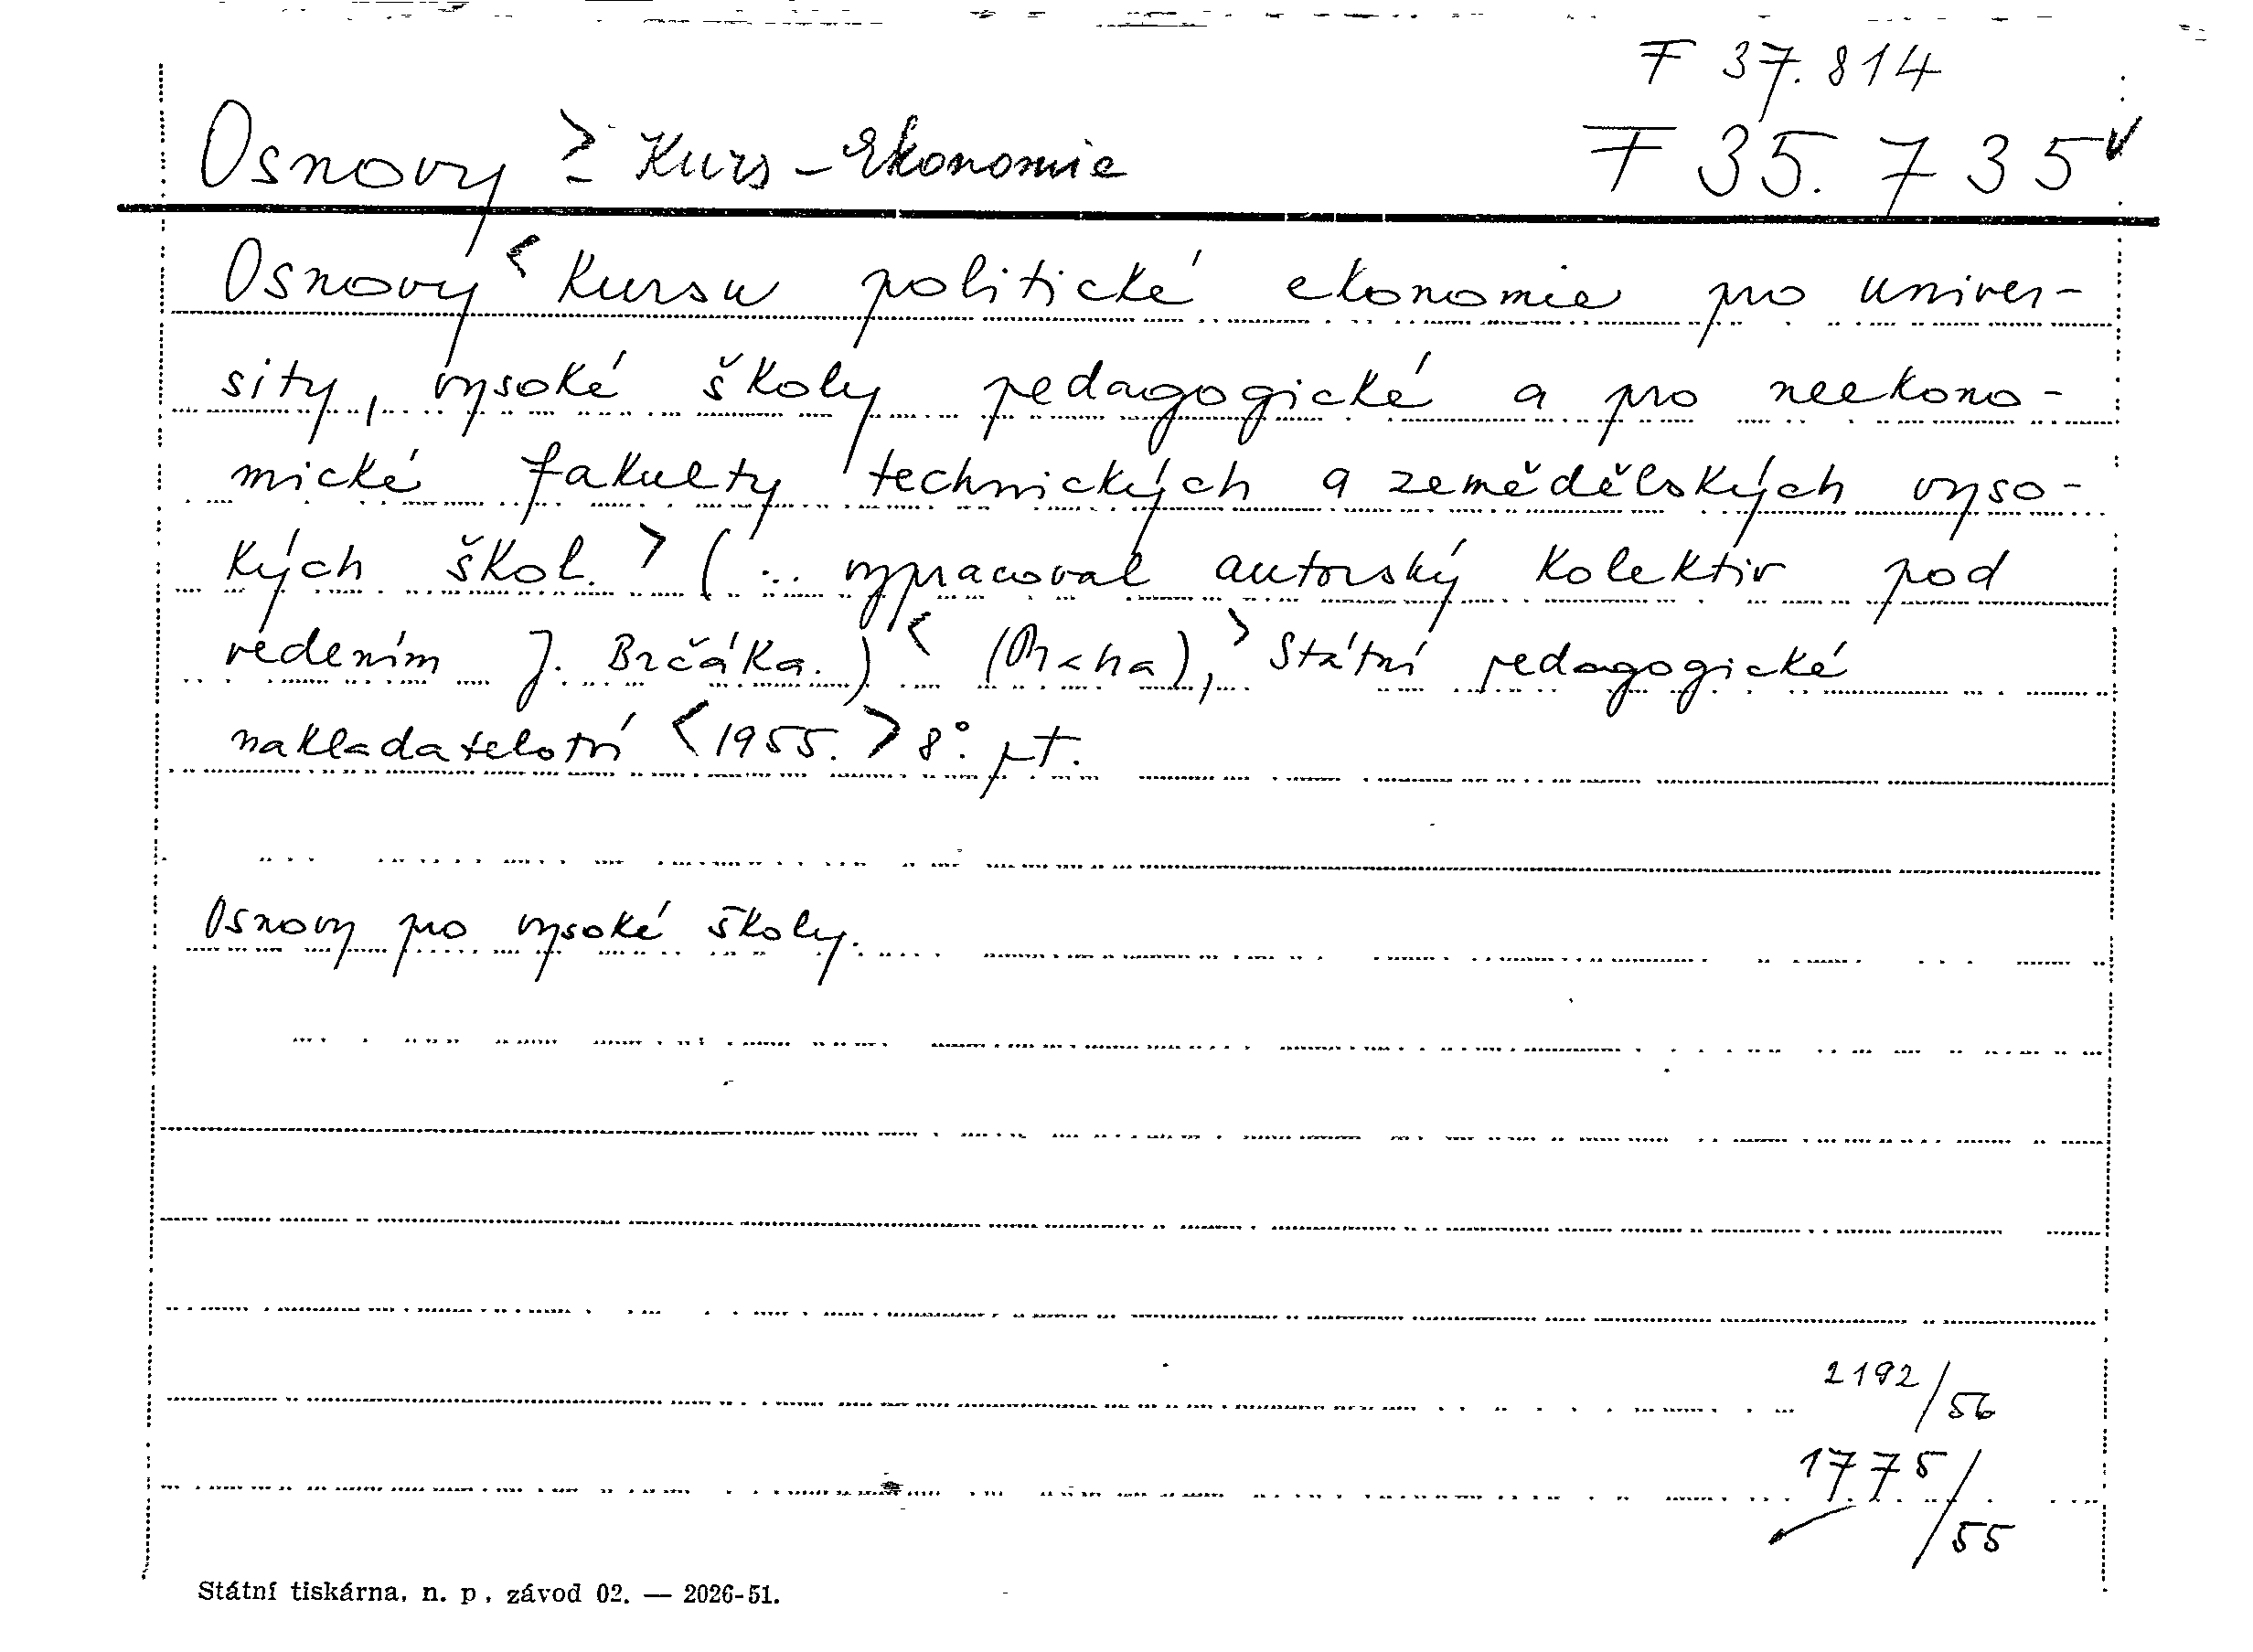 F 37.814
Osnovy > - Kurs - Ekonomie F 35.735
Osnovy < kursu politické ekonomie pro univer-
sity, vysoké školy pedagogické a pro neekono-
mické fakulty technických a zemědělských vyso-
kých škol. > (... vypracoval autorský kolektiv pod
vedením J. Brčáka.) < (Praha), > Státní pedagogické
nakladatelství < 1955. > 8°. pt.
Osnovy pro vysoké školy.
2192/56
1775/55
Státní tiskárna, n. p., závod 02. — 2026-51.